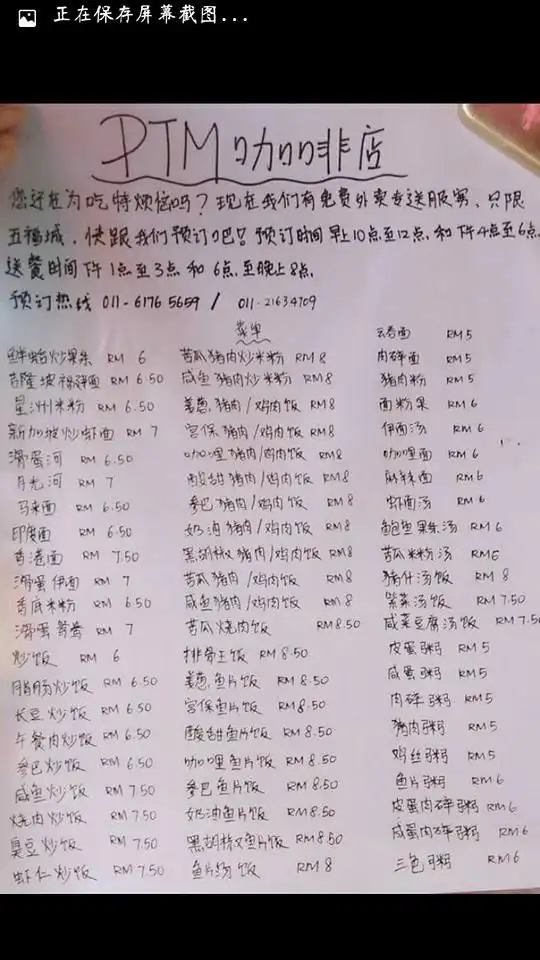 正在保存屏幕截图...
PTM咖啡店
您还在为吃特烦恼吗？现在我们有免费外卖专送服务、只限
五福城，快跟我们预订吧！预订时间早上10点至12点，和下午4点至6点，
送餐时间下午1点至3点 和 6点至晚上8点，
预订热线 011-6176 5659 / 011-21634709
菜单
鲜蛤炒果条 RM 6
吉隆坡福建面 RM 6.50
星洲米粉 RM 6.50
新加坡炒虾面 RM 7
滑蛋河 RM 6.50
月光河 RM 7
马来面 RM 6.50
印度面 RM 6.50
香港面 RM 7.50
滑蛋伊面 RM 7
香底米粉 RM 6.50
滑蛋鸳鸯 RM 7
炒饭 RM 6
腊肠炒饭 RM 6.50
长豆炒饭 RM 6.50
午餐肉炒饭 RM 6.50
参巴炒饭 RM 6.50
咸鱼炒饭 RM 7.50
烧肉炒饭 RM 7.50
臭豆炒饭 RM 7.50
虾仁炒饭 RM 7.50
苦瓜猪肉炒米粉 RM 8
咸鱼猪肉炒米粉 RM 8
姜葱猪肉/鸡肉饭 RM 8
宫保猪肉/鸡肉饭 RM 8
咖哩猪肉/鸡肉饭 RM 8
酸甜猪肉/鸡肉饭 RM 8
参巴猪肉/鸡肉饭 RM 8
奶油猪肉/鸡肉饭 RM 8
黑胡椒猪肉/鸡肉饭 RM 8
苦瓜猪肉/鸡肉饭 RM 8
咸鱼猪肉/鸡肉饭 RM 8
苦瓜烧肉饭 RM 8.50
排骨王饭 RM 8.50
姜葱鱼片饭 RM 8.50
宫保鱼片饭 RM 8.50
酸甜鱼片饭 RM 8.50
咖哩鱼片饭 RM 8.50
参巴鱼片饭 RM 8.50
奶油鱼片饭 RM 8.50
黑胡椒鱼片饭 RM 8.50
鱼片汤饭 RM 8
云吞面 RM 5
肉碎面 RM 5
猪肉粉 RM 5
面粉果 RM 6
伊面汤 RM 6
咖哩面 RM 6
麻辣面 RM 6
虾面汤 RM 6
鲍鱼果条汤 RM 6
苦瓜米粉汤 RM6
猪什汤饭 RM 8
紫菜汤饭 RM 7.50
咸菜豆腐汤饭 RM 7.50
皮蛋粥 RM 5
咸蛋粥 RM 5
肉碎粥 RM 5
猪肉粥 RM 5
鸡丝粥 RM 5
鱼片粥 RM 6
皮蛋肉碎粥 RM 6
咸蛋肉碎粥 RM 6
三色粥 RM 6